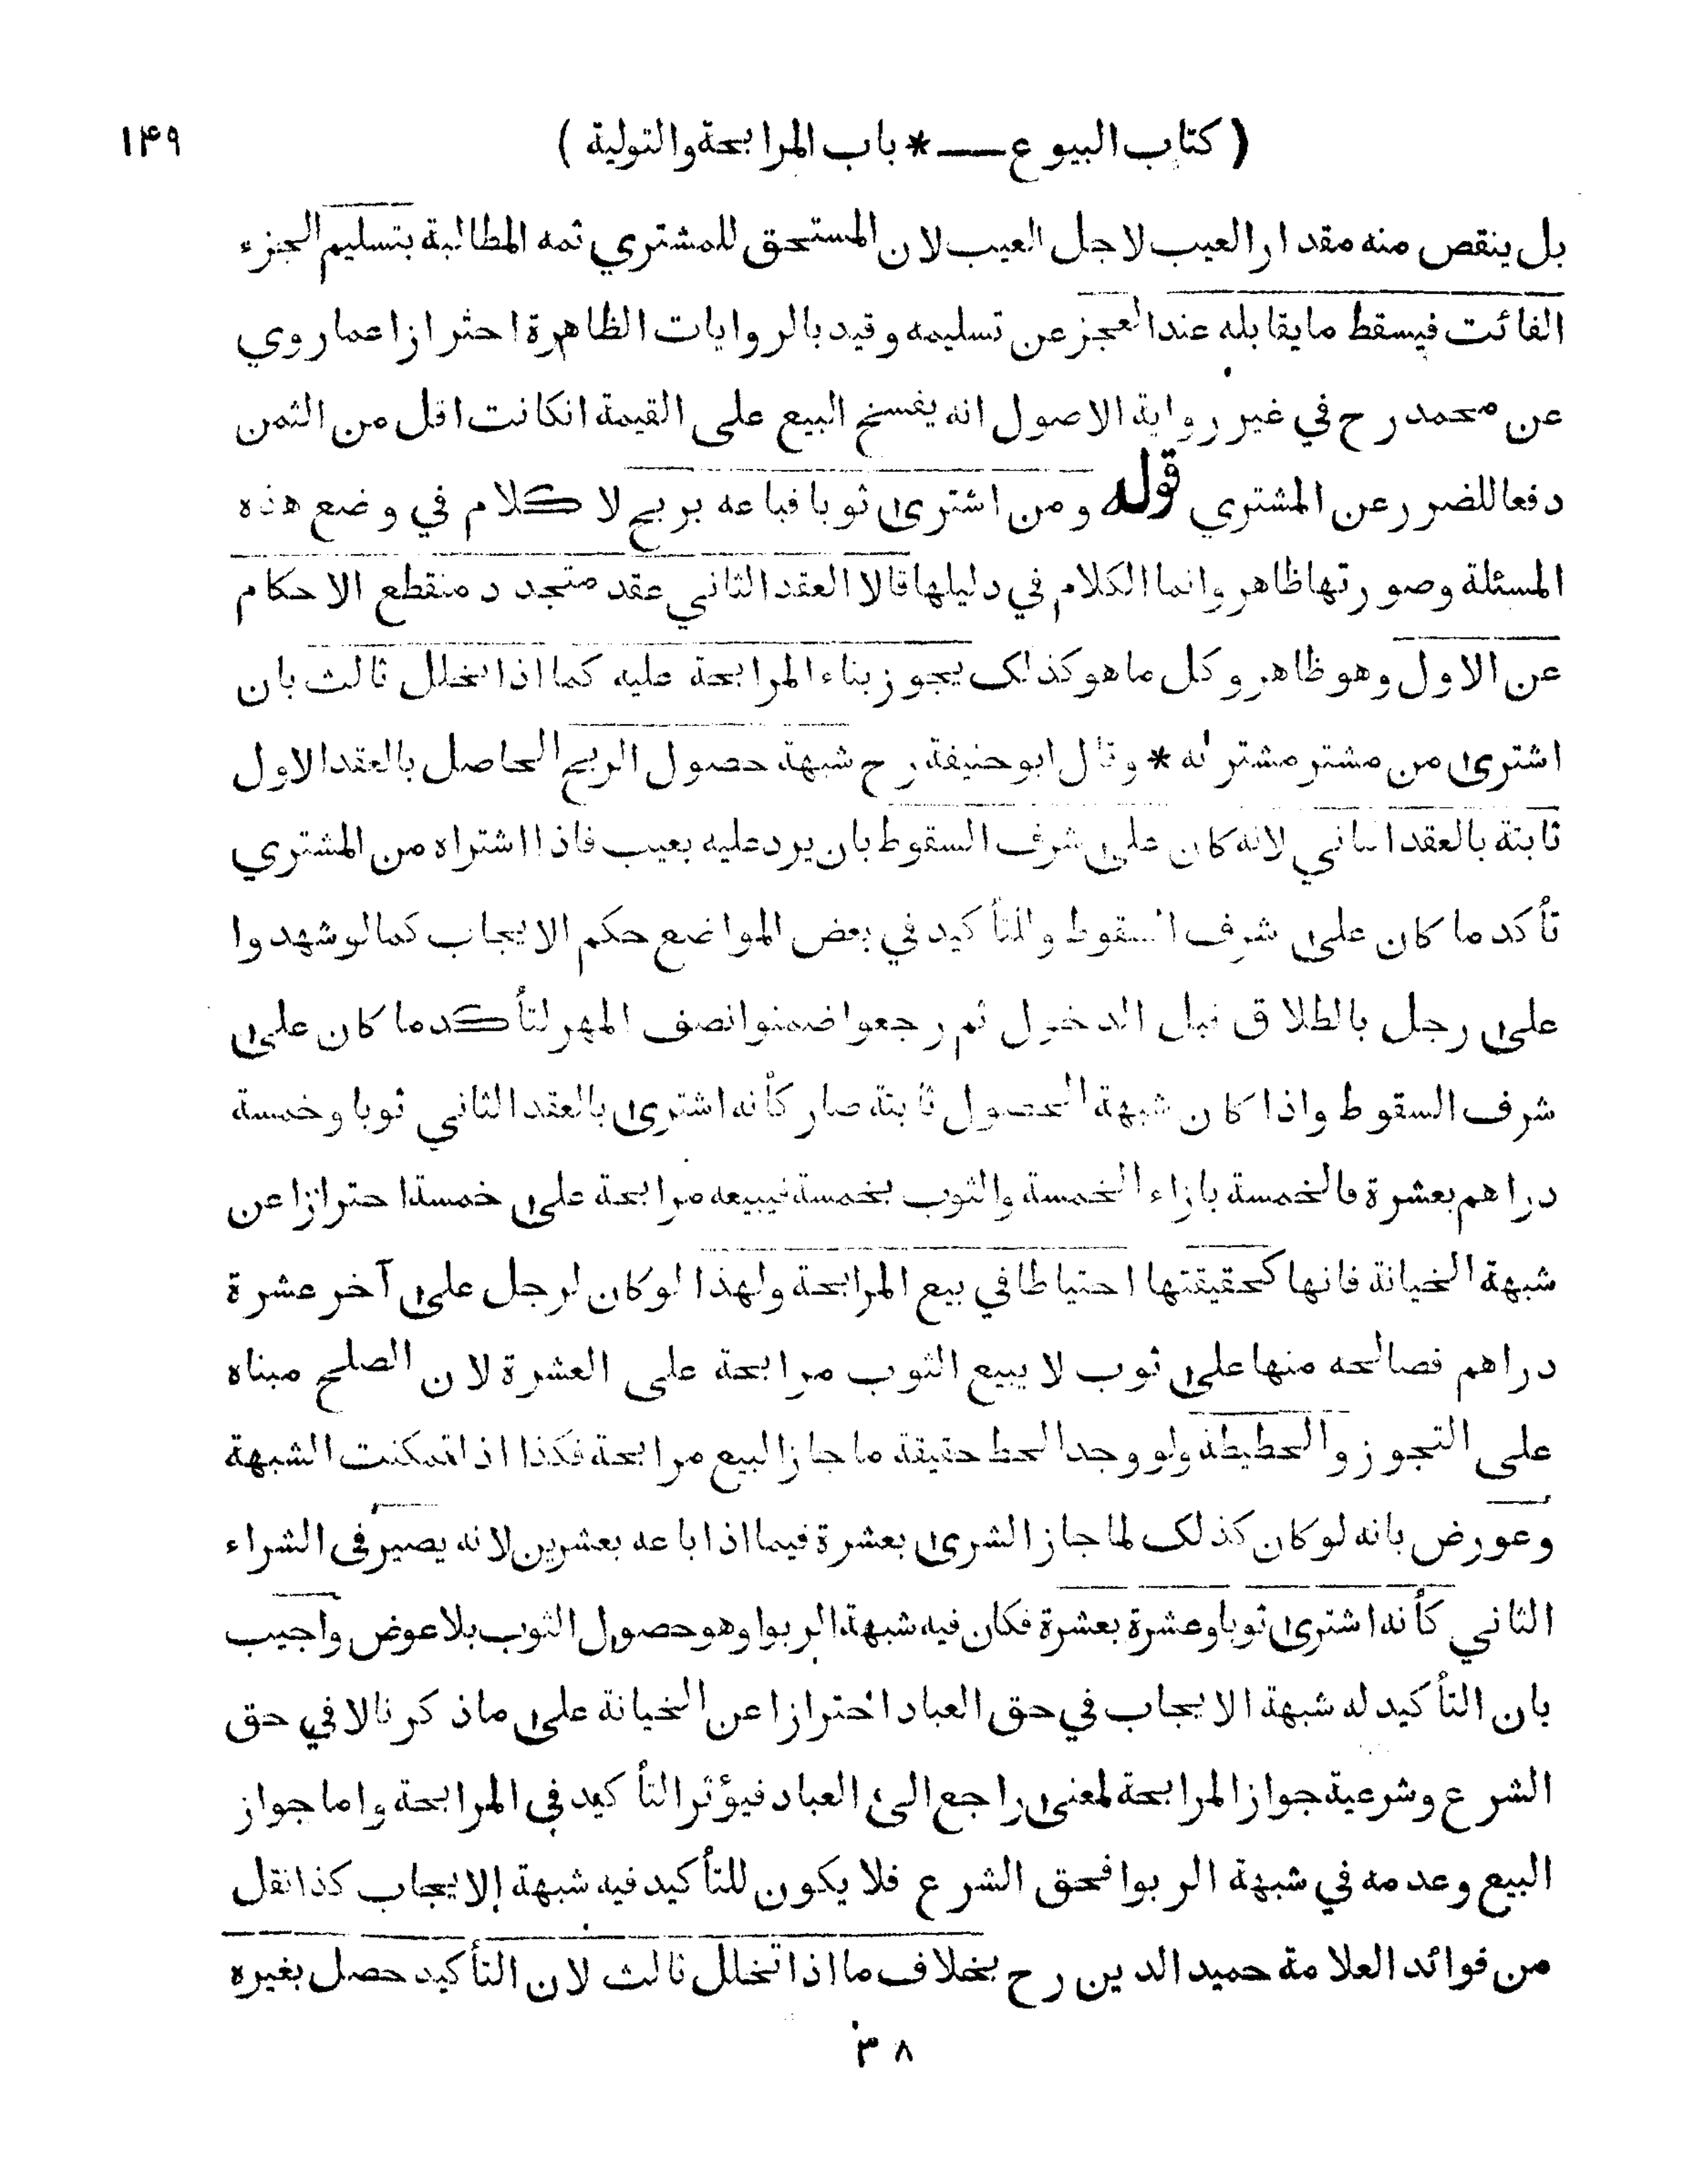 ( كتاب البيوع — * باب المرابحة والتولية )
١٤٩
بل ينقص منه مقدار العيب لاجل العيب لان المستحق للمشتري ثمه المطالبة بتسليم الجزء
الفائت فيسقط مايقابله عند العجز عن تسليمه وقيد بالروايات الظاهرة احترازا عما روي
عن محمد رح في غير رواية الاصول انه يفسخ البيع على القيمة انكانت اقل من الثمن
دفعا للضرر عن المشتري قوله ومن اشترى ثوبا فباعه بربح لا كلام في وضع هذه
المسئلة وصورتها ظاهر وانما الكلام في دليلها قالا العقد الثاني عقد متجدد منقطع الاحكام
عن الاول وهو ظاهر وكل ماهو كذلك يجوز بناء المرابحة عليه كما اذا تخلل ثالث بان
اشترى من مشتر مشتراه * وقال ابو حنيفة رح شبهة حصول الربح الحاصل بالعقد الاول
ثابتة بالعقد الثاني لانه كان على شرف السقوط بان يرد عليه بعيب فاذا اشتراه من المشتري
تأكد ما كان على شرف السقوط والتأكيد في بعض المواضع حكم الايجاب كما لو شهدوا
على رجل بالطلاق قبل الدخول ثم رجعوا ضمنوا نصف المهر لتأكد ما كان على
شرف السقوط واذا كان شبهة الحصول ثابتة صار كأنه اشترى بالعقد الثاني ثوبا وخمسة
دراهم بعشرة فالخمسة بازاء الخمسة والثوب بخمسة فيبيعه مرابحة على خمسة احترازا عن
شبهة الخيانة فانها كحقيقتها احتياطا في بيع المرابحة ولهذا لو كان لرجل على آخر عشرة
دراهم فصالحه منها على ثوب لا يبيع الثوب مرابحة على العشرة لان الصلح مبناه
على التجوز والحطيطة ولو وجد الحط حقيقة ما جاز البيع مرابحة فكذا اذا تمكنت الشبهة
وعورض بانه لو كان كذلك لما جاز الشرى بعشرة فيما اذا باعه بعشرين لانه يصير في الشراء
الثاني كأنه اشترى ثوبا وعشرة بعشرة فكان فيه شبهة الربوا وهو حصول الثوب بلا عوض واجيب
بان التأكيد له شبهة الايجاب في حق العباد احترازا عن الخيانة على ماذكرنا لا في حق
الشرع وشرعية جواز المرابحة لمعنى راجع الى العباد فيؤثر التأكيد في المرابحة واما جواز
البيع وعدمه في شبهة الربوا فحق الشرع فلا يكون للتأكيد فيه شبهة الايجاب كذا نقل
من فوائد العلامة حميد الدين رح بخلاف ما اذا تخلل ثالث لان التأكيد حصل بغيره
٣٨